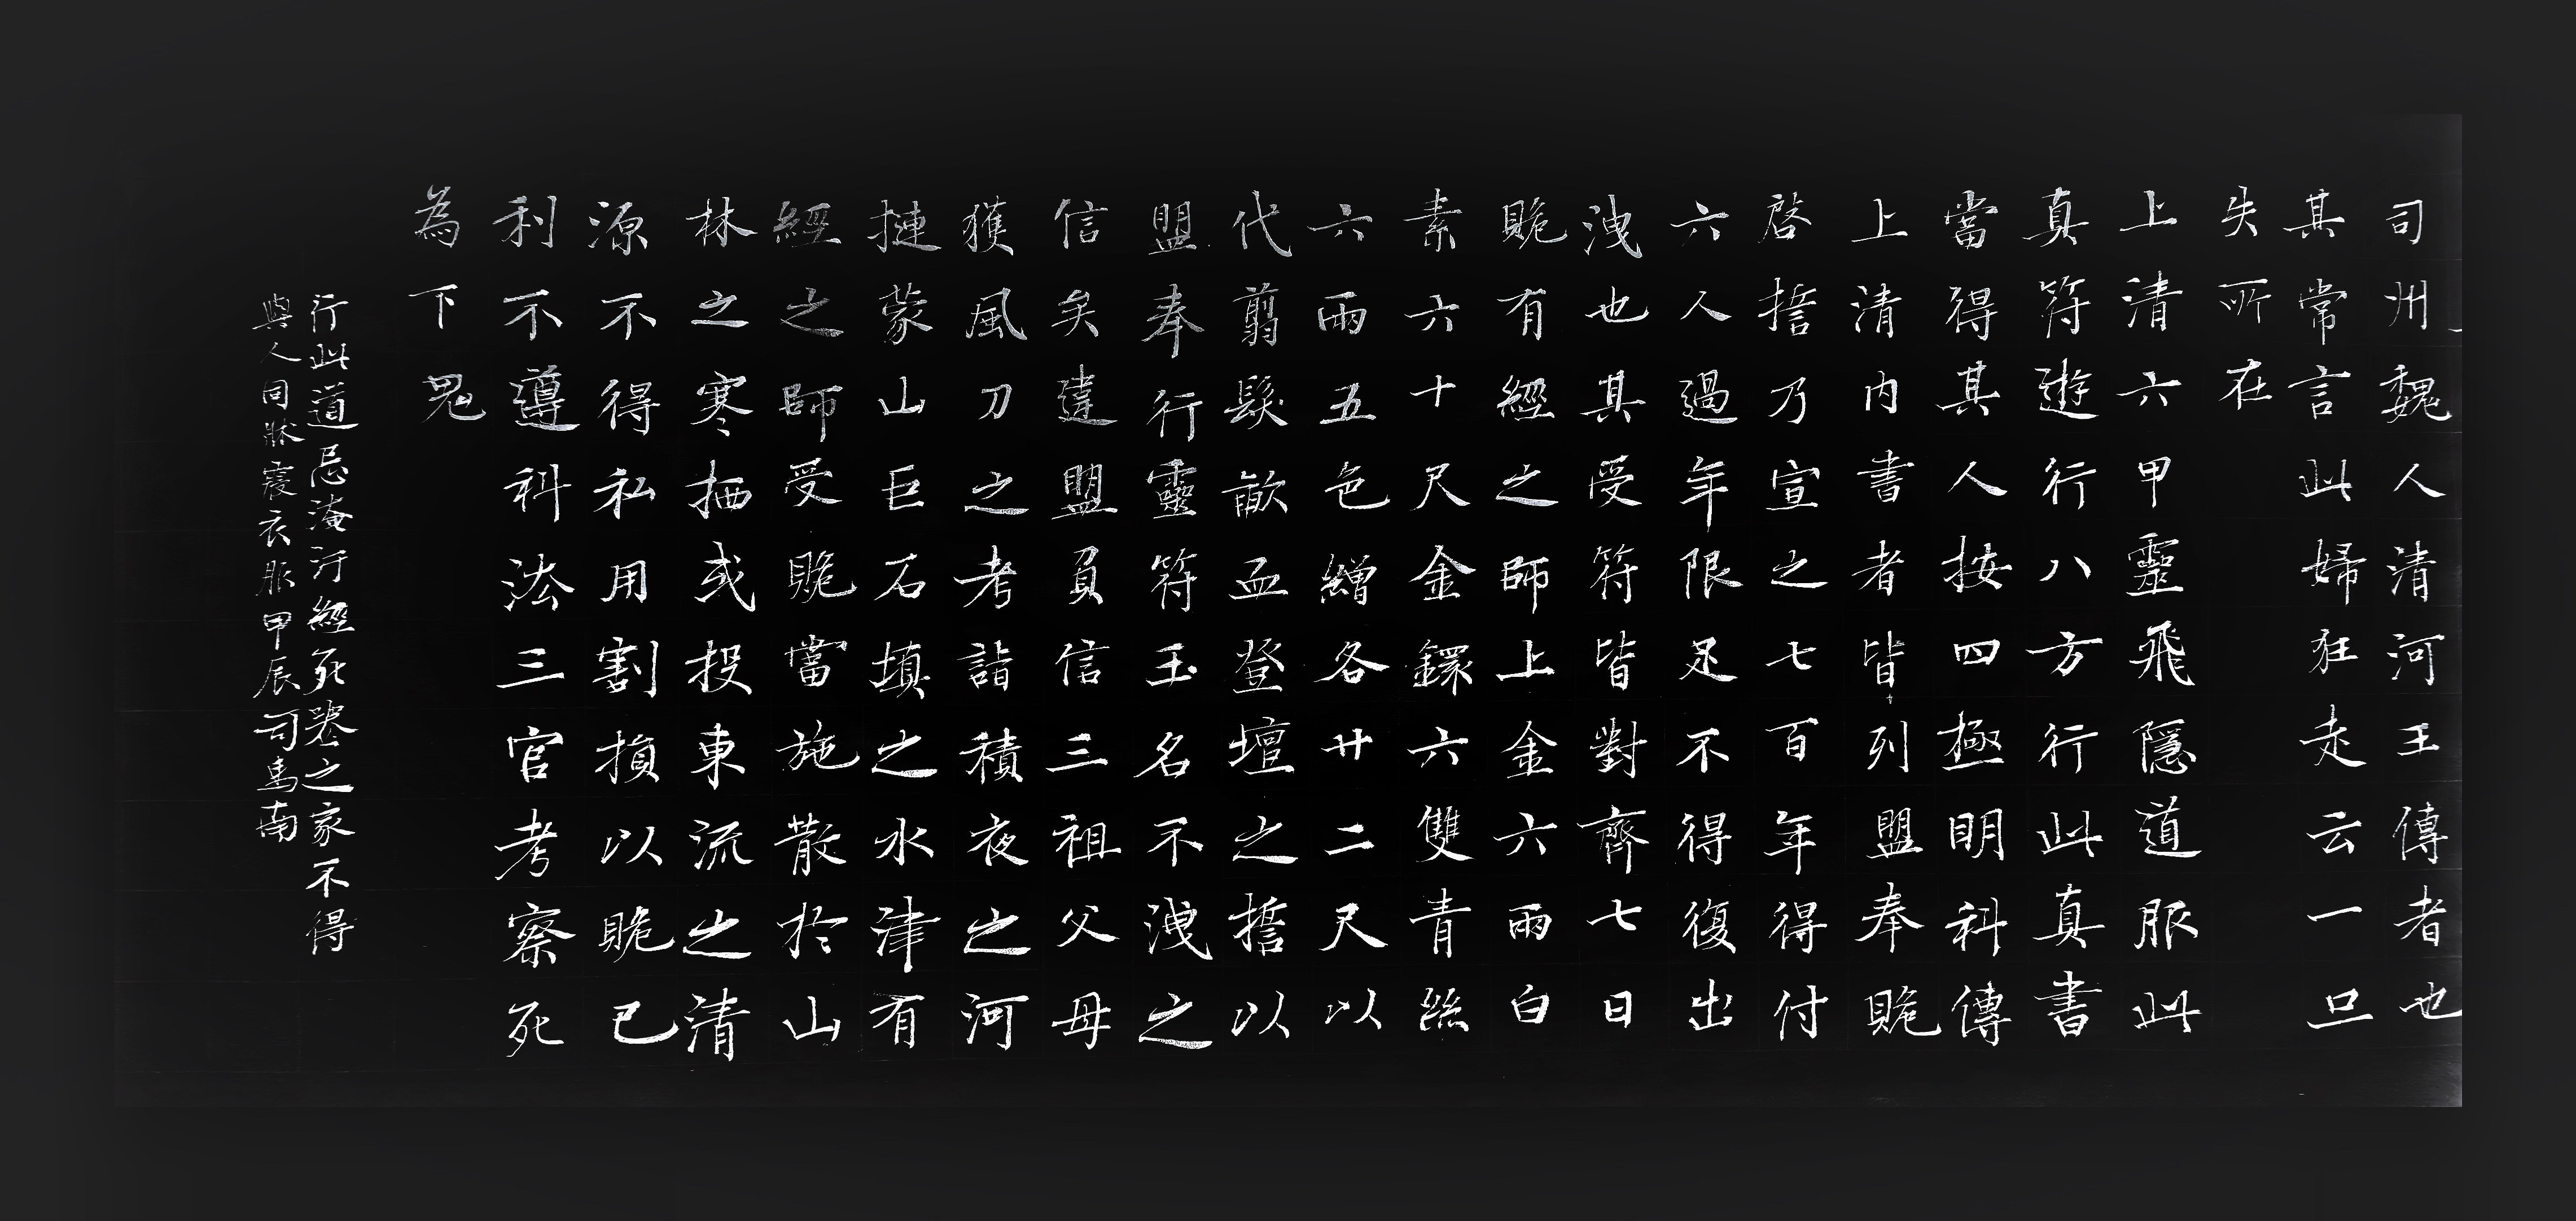 司州魏人清河王傳者也
其常言此婦狂走云一旦
失所在
上清六甲靈飛隱道服此
真符遊行八方行此真書
當得其人按四極明科傳
上清內書者皆列盟奉贶
啓誓乃宣之七百年得付
六人過年限足不得復出
洩也其受符皆對齊七日
贶有經之師上金六兩白
素六十尺金鐶六雙青絲
六兩五色繒各廿二尺以
代翦髮歃血登壇之誓以
盟奉行靈符玉名不洩之
信矣違盟負信三祖父母
獲風刀之考詣積夜之河
摙蒙山巨石填之水津有
經之師受贶當施散於山
林之寒栖或投東流之清
源不得私用割損以贶已
利不遵科法三官考察死
為下鬼
行此道忌淹汙經死喪之家不得
與人同牀寢衣服甲辰司馬南